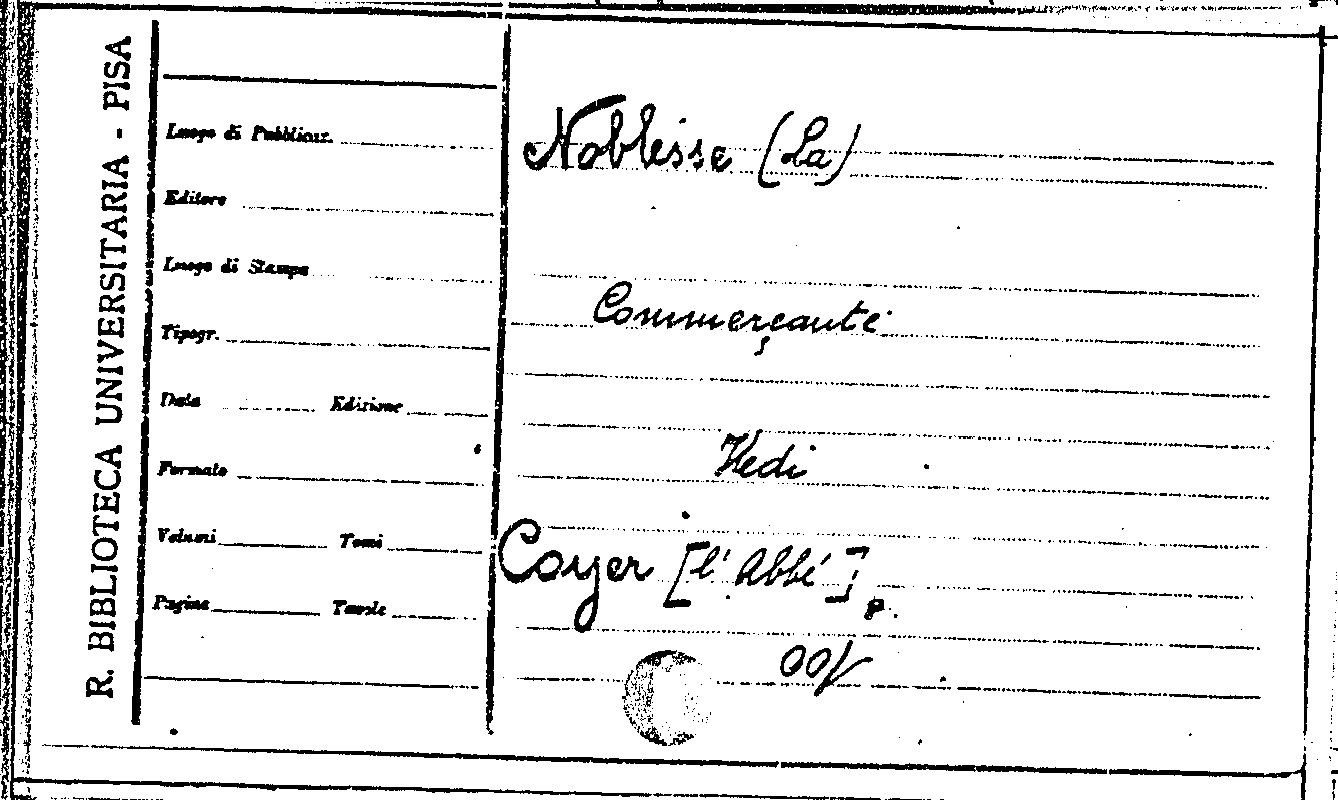 R. BIBLIOTECA UNIVERSITARIA - PISA
Luogo di Pubblicaz.
Editore
Luogo di Stampa
Tipogr.
Data Edizione
Formato
Volumi Tomi
Pagine Tavole
Noblesse (La)
Commerçante
Vedi
Coyer [l'Abbé]